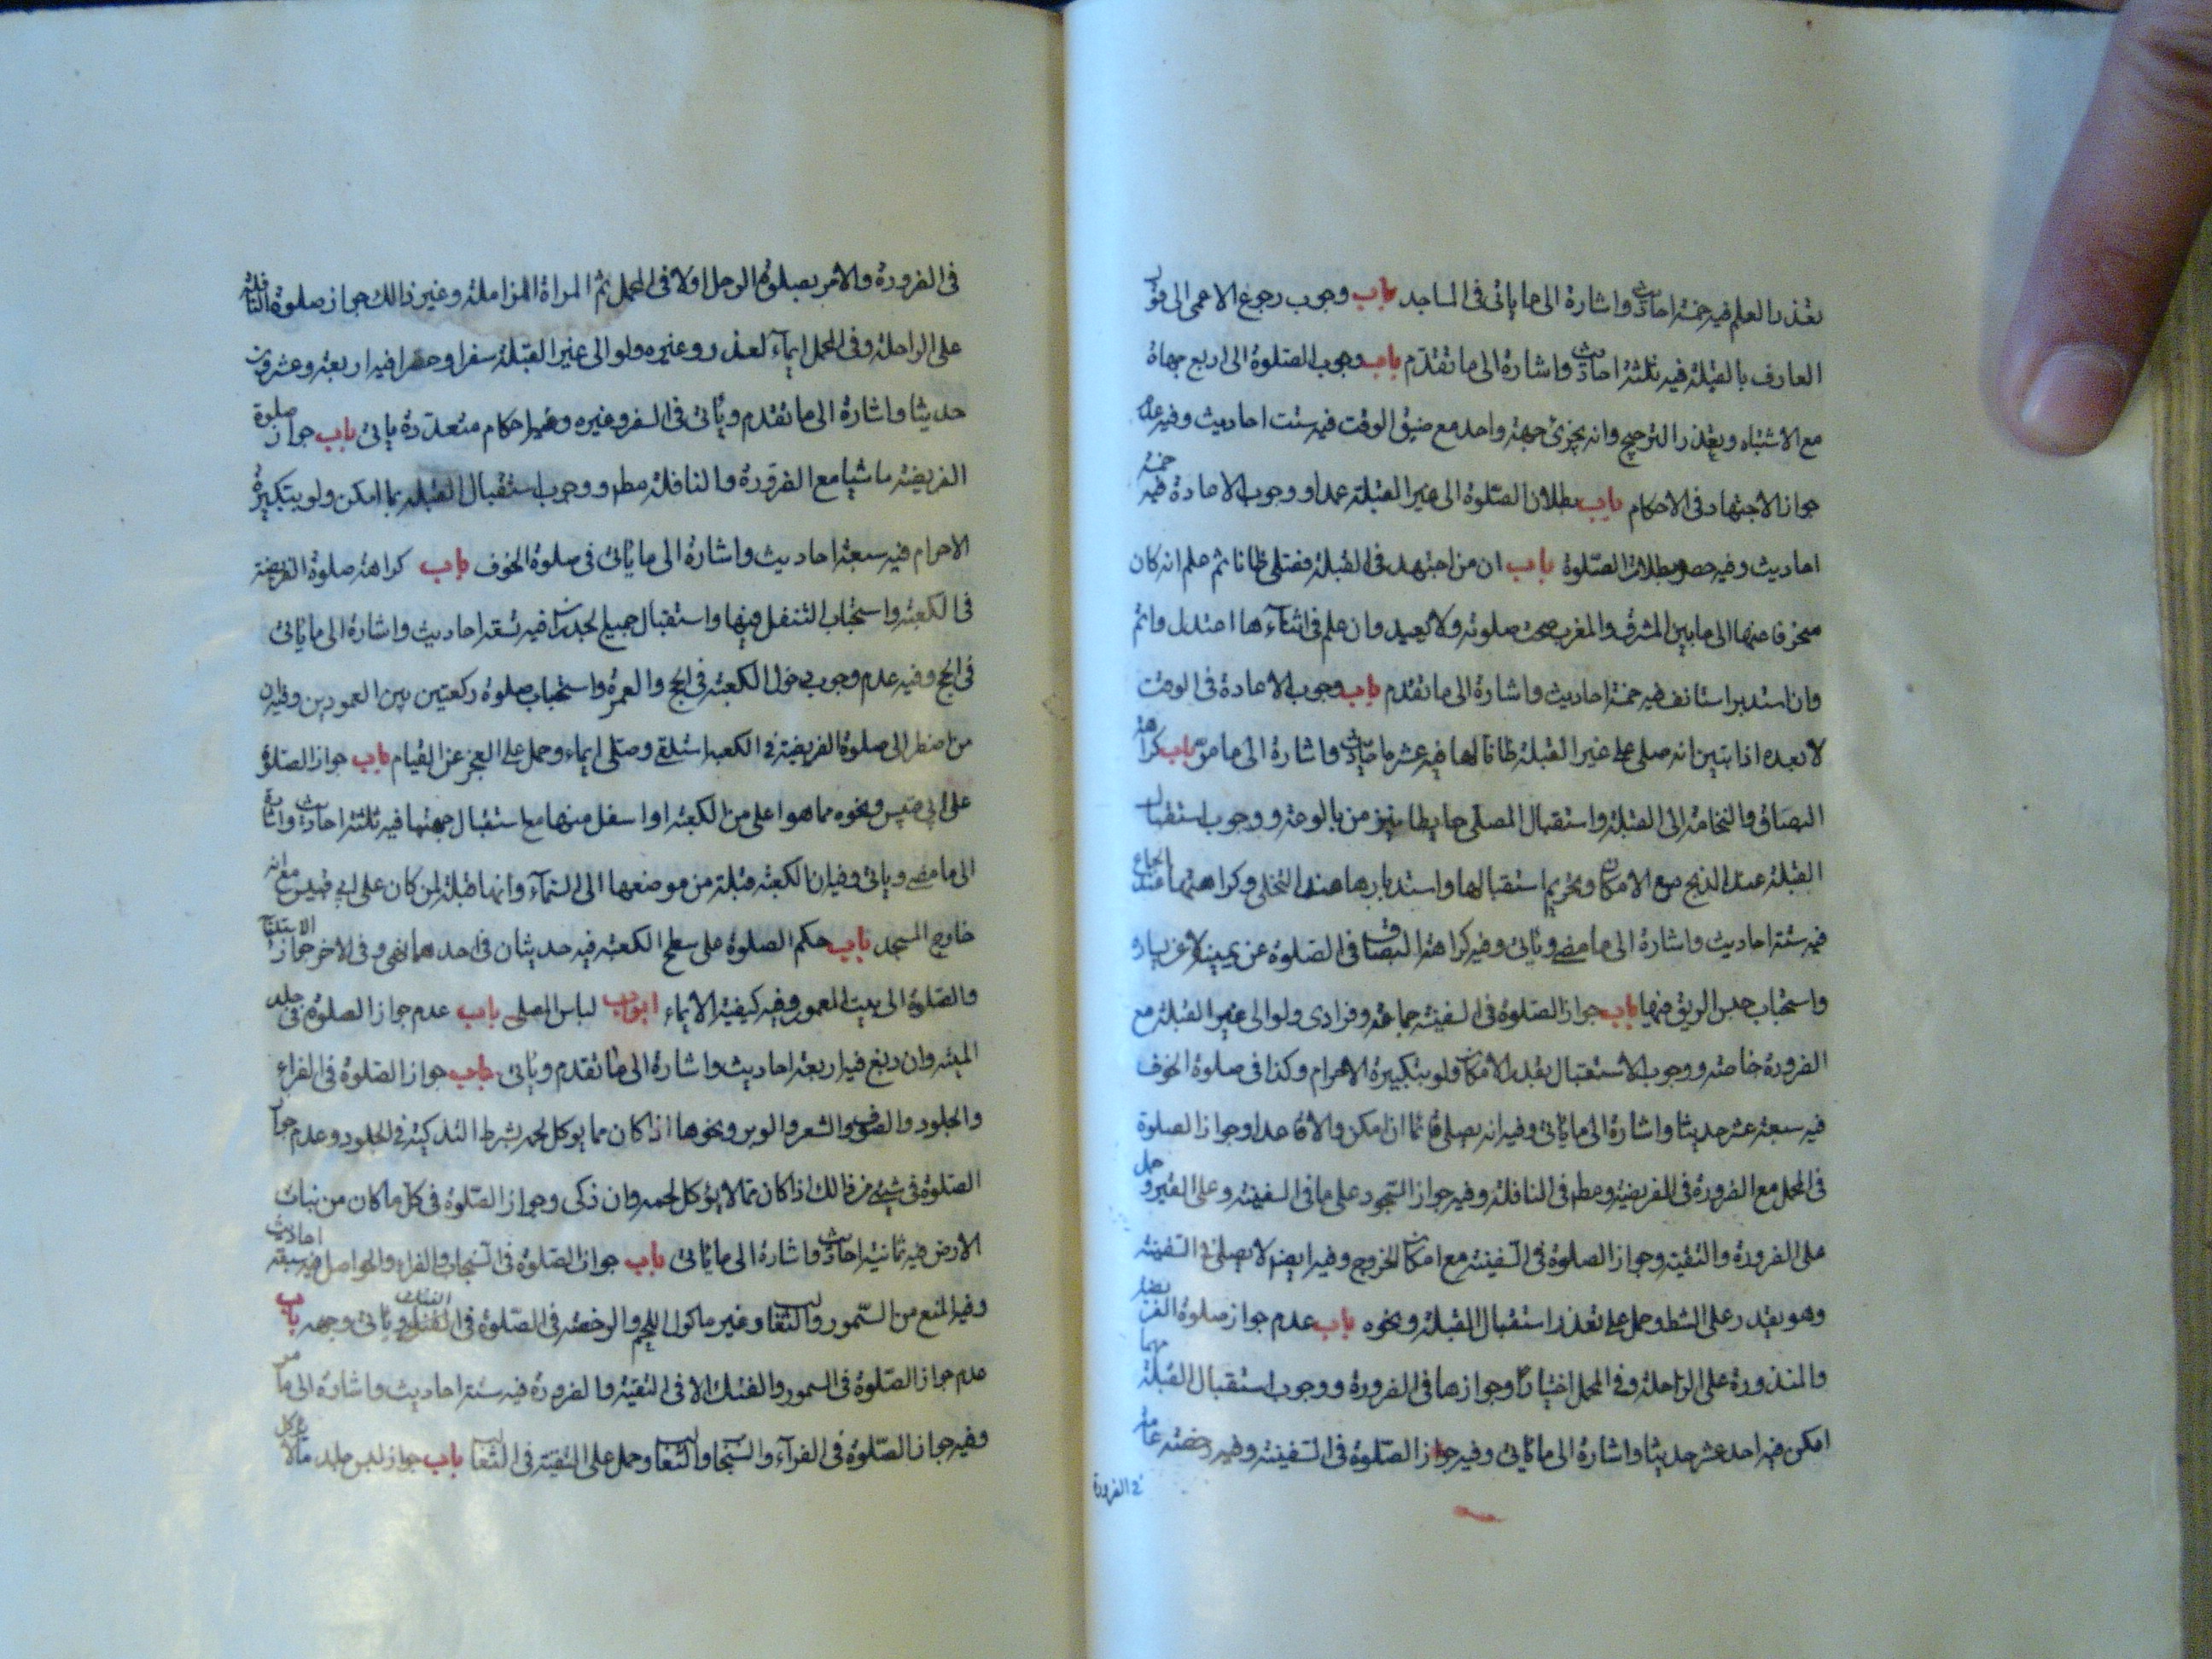 تعذر العلم فيه خمسة احاديث واشارة الى ما ياتى فى المساجد باب وجوب رجوع الاعمى الى قول
العارف بالقبلة فيه ثلثة احاديث واشارة الى ما تقدم باب وجوب الصلوة الى اربع جهاة
مع الاشتباه وتعذر الترجيح وانه يجزئ جهة واحد مع ضيق الوقت فيه ستت احاديث وفيه عدم
جواز الاجتهاد فى الاحكام باب بطلان الصلوة الى غير القبلة عمدا ووجوب الاعادة فيه خمسة
احاديث وفيه حصر مبطلات الصلوة باب ان من اجتهد فى القبلة فصلى ظانا ثم علم انه كان
منحرفا عنها الى ما بين المشرق والمغرب صحت صلوته ولا يعيد وان علم فى اثنآءها اعتدل واتم
وان استدبر استانف فيه خمسة احاديث واشارة الى ما تقدم باب وجوب الاعادة فى الوقت
لا بعده اذا تبين انه صلى على غير القبلة ظانا لها فيه عشر احاديث واشارة الى ما مر باب كراهة
البصاق والنخامة الى القبلة واستقبال المصلى حايطا ينز من بالوعة ووجوب استقبال
القبلة عند الذبح مع الامكان وتحريم استقبالها واستدبارها عند التخلى وكراهتهما عند الجماع
فيه ستة احاديث واشارة الى ما مضى وياتى وفيه كراهة البصاق فى الصلوة عن يمينه لا عن يساره
واستحباب حبس الريق فيها باب جواز الصلوة فى السفينة جماعة وفرادى ولو الى غير القبلة مع
الضرورة خاصة ووجوب الاستقبال بقدر الامكان ولو بتكبيرة الاحرام وكذا فى صلوة الخوف
فيه سبعة عشر حديثا واشارة الى ما ياتى وفيه انه يصلى قائما ان امكن والا قاعدا وجواز الصلوة
فى المحمل مع الضرورة فى الفريضة ومطم فى النافلة وفيه جواز السجود على ما فى السفينة وعلى القير وحمل
على الضرورة والتقية وجواز الصلوة فى السفينة مع امكان الخروج وفيه ايضم لا يصلى فى السفينة
وهو يقدر على الشط وحمل على تعذر استقبال القبلة ونحوه باب عدم جواز صلوة الفريضة
والمنذورة على الراحلة وفى المحمل اختيارا وجوازها فى الضرورة ووجوب استقبال القبلة مهما
امكن فيه احد عشر حديثا واشارة الى ما ياتى وفيه جواز الصلوة فى السفينة وفيه رخصة عامة
فى الضرورة
فى الضرورة والامر بصلوة الرجل اولا فى المحمل ثم المراة المزاملة وغير ذالك جواز صلوة النافلة
على الراحلة وفى المحمل ايمآء لعذر وغيره ولو الى غير القبلة سفرا وحضرا فيه اربعة وعشرون
حديثا واشارة الى ما تقدم وياتى فى السفر وغيره وفيه احكام متعددة ياتى باب جواز صلوة
الفريضة ماشيا مع الضرورة والنافلة مطم ووجوب استقبال القبلة بما امكن ولو بتكبيرة
الاحرام فيه سبعة احاديث واشارة الى ما ياتى فى صلوة الخوف باب كراهة صلوة الفريضة
فى الكعبة واستحباب التنفل فيها واستقبال جميع الجدران فيه تسعة احاديث واشارة الى ما ياتى
فى الحج وفيه عدم وجوب دخول الكعبة فى الحج والعمرة واستحباب صلوة ركعتين بين العمودين وفيه ان
من اضطر الى صلوة الفريضة فى الكعبة استلقى وصلى ايماء وحمل على العجز عن القيام باب جواز الصلوة
على ابى قبيس ونحوه مما هو اعلى من الكعبة او اسفل منها مع استقبال جهتها فيه ثلثة احاديث واشارة
الى ما مضى وياتى وفيه ان الكعبة قبلة من موضعها الى السمآء وانها قبلة لمن كان على ابى قبيس مع انه
خارج المسجد باب حكم الصلوة على سطح الكعبة فيه حديثان فى احدهما نهى وفى الاخر جواز الاستلقآء
والصلوة الى بيت المعمور وفيه كيفية الايماء ابواب لباس المصلى باب عدم جواز الصلوة فى جلد
الميتة وان دبغ فيه اربعة احاديث واشارة الى ما تقدم وياتى باب جواز الصلوة فى الفراء
والجلود والصوف والشعر والوبر ونحوها اذا كان مما يوكل لحمه بشرط التذكية فى الجلود وعدم جواز
الصلوة فى شئ من ذالك اذا كان مما لا يؤكل لحمه وان ذكى وجواز الصلوة فى كل ما كان من نبات
الارض فيه ثمانية احاديث واشارة الى ما ياتى باب جواز الصلوة فى السنجاب والفراء والحواصل فيه سبعة احاديث
وفيه المنع من السمور والثعالب وغير ماكول اللحم والرخصة فى الصلوة فى الفنك وياتى وجهه باب
عدم جواز الصلوة فى السمور والفنك الا فى التقية والضرورة فيه ستة احاديث واشارة الى ما مر
وفيه جواز الصلوة فى الفرآء والسنجاب والثعالب وحمل على التقية فى الثعالب باب جواز لبس جلد ما لا يوكل